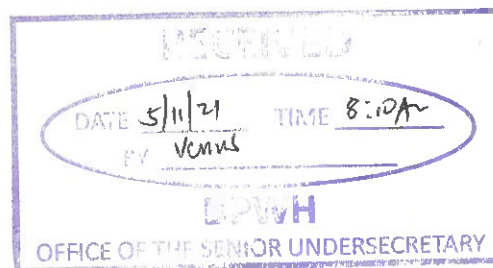 RECEIVED
DATE 5/11/21 TIME 8:10 AM
BY Venus
DPWH
OFFICE OF THE SENIOR UNDERSECRETARY